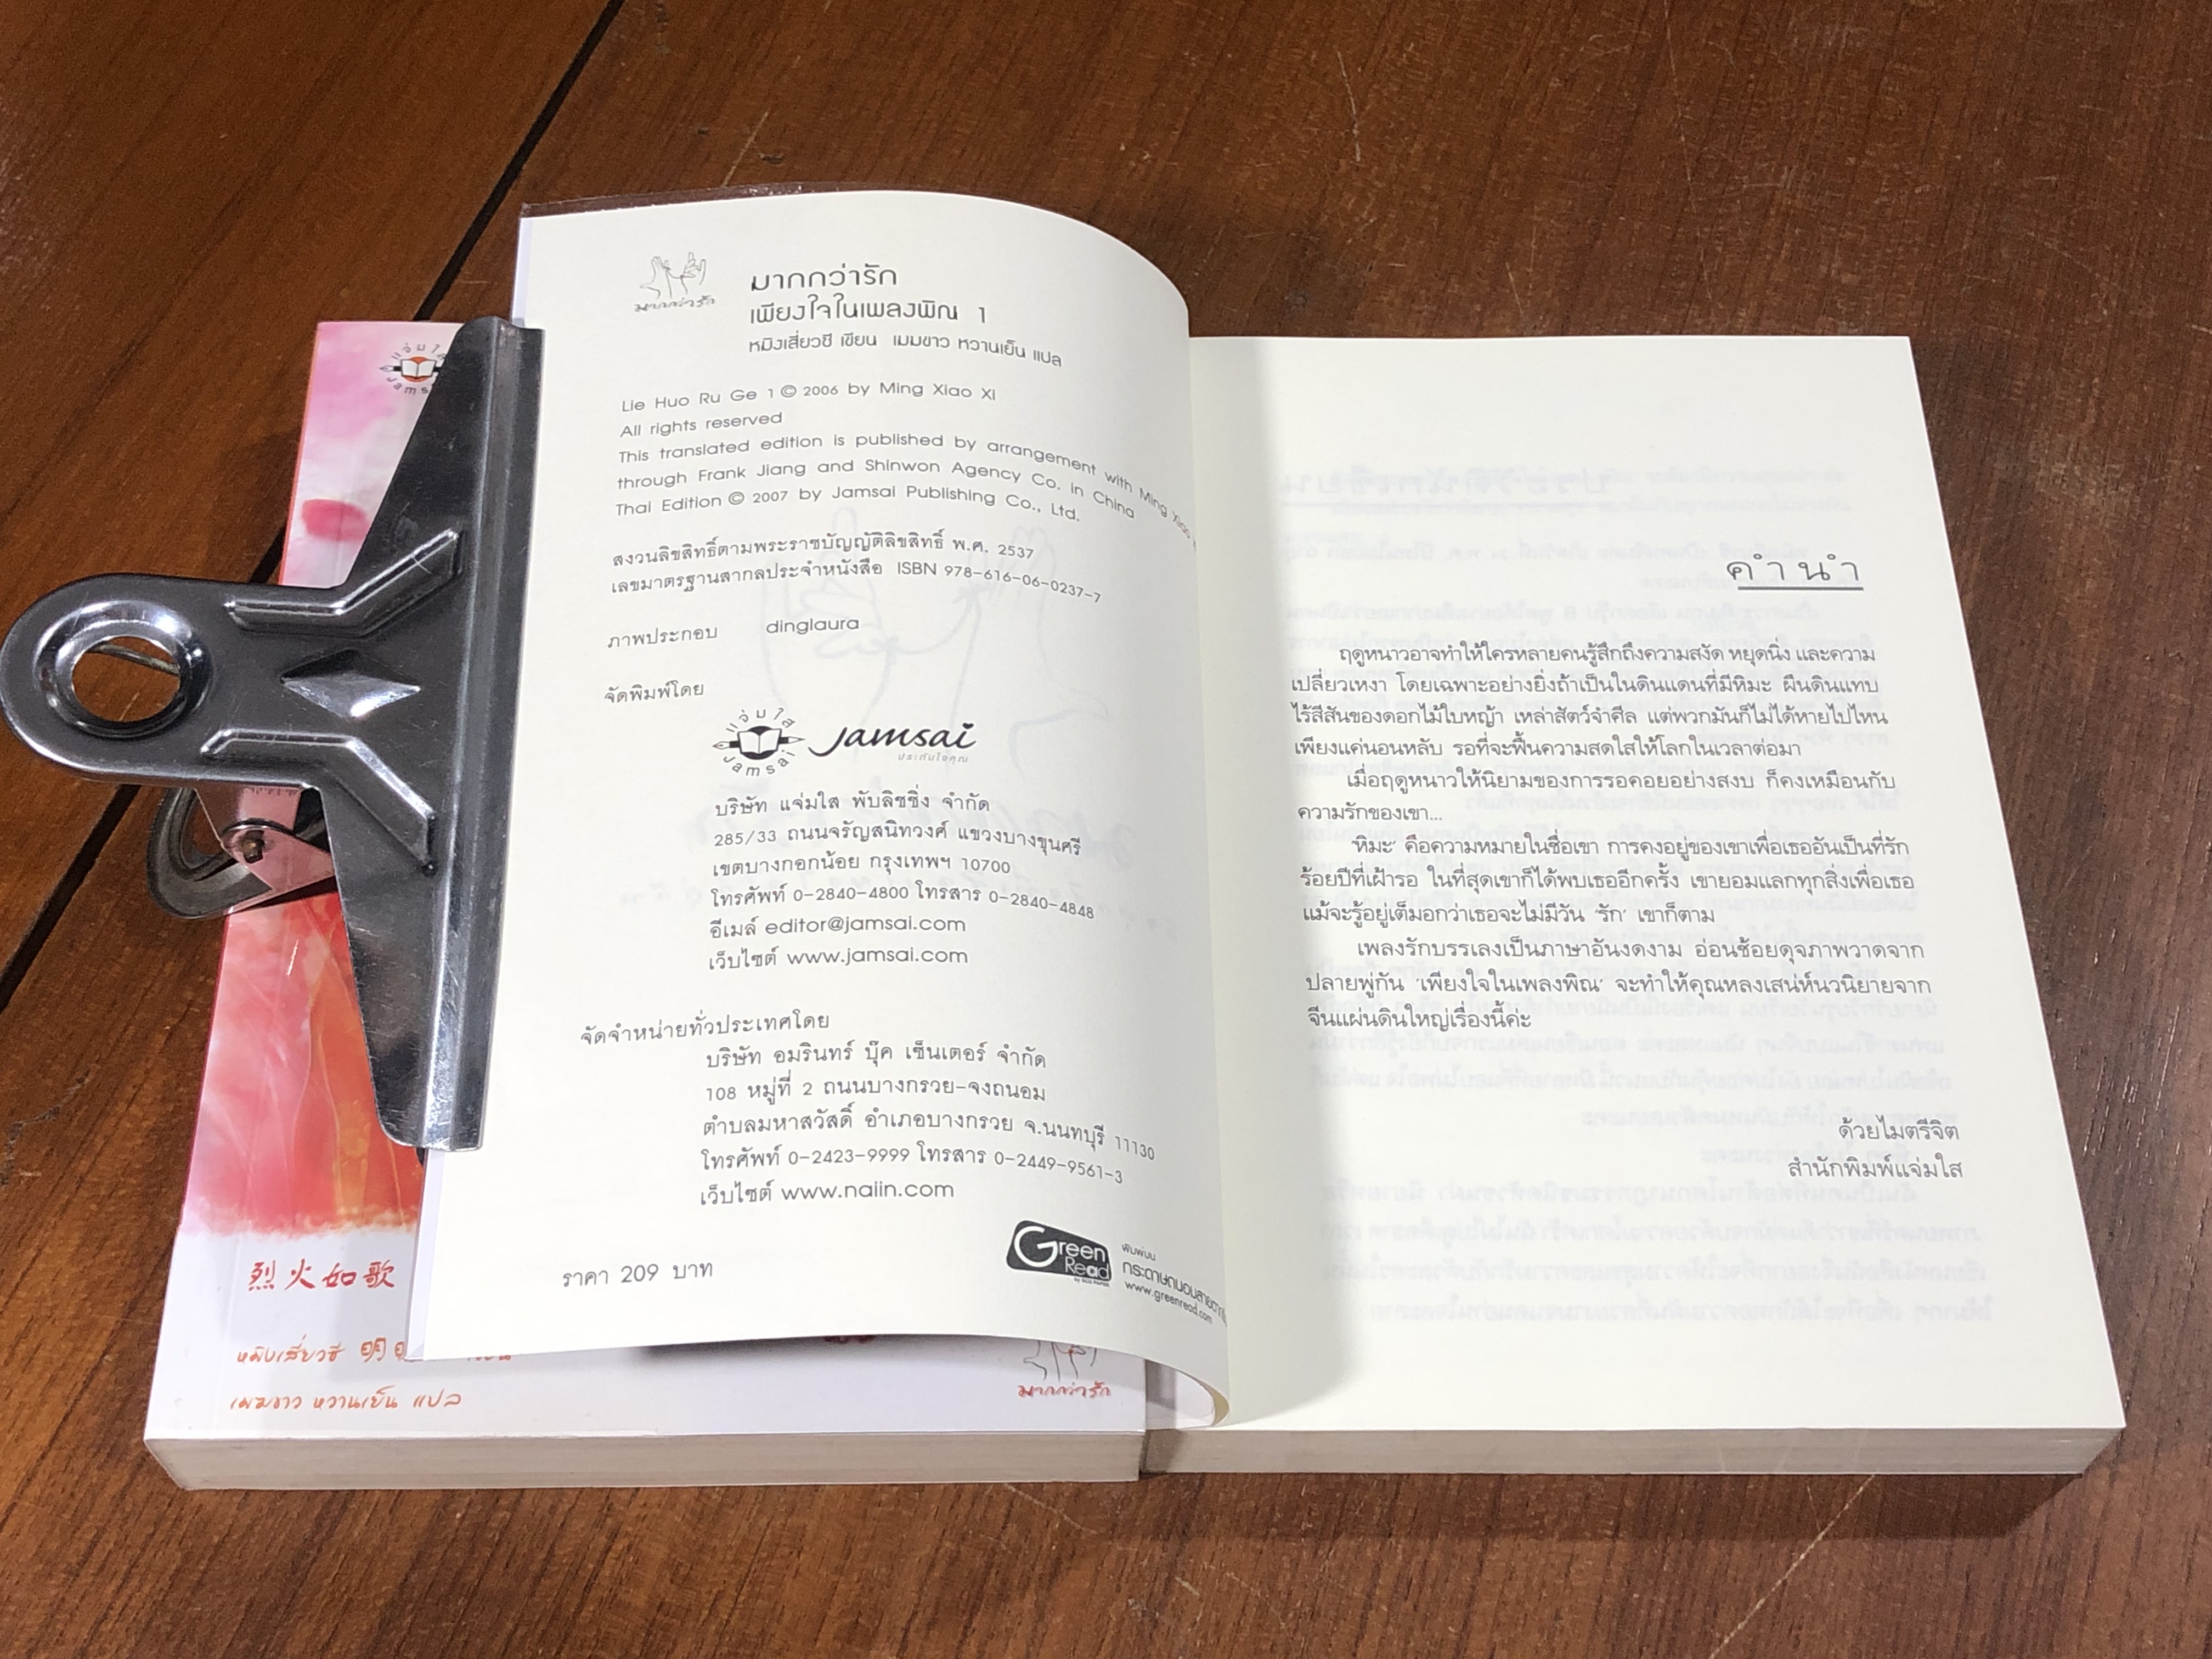 มากกว่ารัก
มากกว่ารัก
เพียงใจในเพลงพิณ 1
หมิงเสี่ยวซี เขียน เมฆขาว หวานเย็น แปล
Lie Huo Ru Ge 1 © 2006 by Ming Xiao Xi
All rights reserved
This translated edition is published by arrangement with Ming Xiao
through Frank Jiang and Shinwon Agency Co. in China
Thai Edition © 2007 by Jamsai Publishing Co., Ltd.
สงวนลิขสิทธิ์ตามพระราชบัญญัติลิขสิทธิ์ พ.ศ. 2537
เลขมาตรฐานสากลประจำหนังสือ ISBN 978-616-06-0237-7
ภาพประกอบ dinglaura
จัดพิมพ์โดย
แจ่มใส
Jamsai
Jamsai
ประทับใจคุณ
บริษัท แจ่มใส พับลิชชิ่ง จำกัด
285/33 ถนนจรัญสนิทวงศ์ แขวงบางขุนศรี
เขตบางกอกน้อย กรุงเทพฯ 10700
โทรศัพท์ 0-2840-4800 โทรสาร 0-2840-4848
อีเมล์ editor@jamsai.com
เว็บไซต์ www.jamsai.com
จัดจำหน่ายทั่วประเทศโดย
บริษัท อมรินทร์ บุ๊ค เซ็นเตอร์ จำกัด
108 หมู่ที่ 2 ถนนบางกรวย-จงถนอม
ตำบลมหาสวัสดิ์ อำเภอบางกรวย จ.นนทบุรี 11130
โทรศัพท์ 0-2423-9999 โทรสาร 0-2449-9561-3
เว็บไซต์ www.naiin.com
ราคา 209 บาท
Green
Read
by SCG PAPER
พิมพ์บน
กระดาษถนอมสายตา
www.greenread.com
คำนำ
ฤดูหนาวอาจทำให้ใครหลายคนรู้สึกถึงความสงัด หยุดนิ่ง และความ
เปลี่ยวเหงา โดยเฉพาะอย่างยิ่งถ้าเป็นในดินแดนที่มีหิมะ ผืนดินแทบ
ไร้สีสันของดอกไม้ใบหญ้า เหล่าสัตว์จำศีล แต่พวกมันก็ไม่ได้หายไปไหน
เพียงแค่นอนหลับ รอที่จะฟื้นความสดใสให้โลกในเวลาต่อมา
เมื่อฤดูหนาวให้นิยามของการรอคอยอย่างสงบ ก็คงเหมือนกับ
ความรักของเขา...
'หิมะ' คือความหมายในชื่อเขา การคงอยู่ของเขาเพื่อเธออันเป็นที่รัก
ร้อยปีที่เฝ้ารอ ในที่สุดเขาก็ได้พบเธออีกครั้ง เขายอมแลกทุกสิ่งเพื่อเธอ
แม้จะรู้อยู่เต็มอกว่าเธอจะไม่มีวัน 'รัก' เขาก็ตาม
เพลงรักบรรเลงเป็นภาษาอันงดงาม อ่อนช้อยดุจภาพวาดจาก
ปลายพู่กัน 'เพียงใจในเพลงพิณ' จะทำให้คุณหลงเสน่ห์นวนิยายจาก
จีนแผ่นดินใหญ่เรื่องนี้ค่ะ
ด้วยไมตรีจิต
สำนักพิมพ์แจ่มใส
แจ่มใส
烈火如歌
หมิงเสี่ยวซี 明
เมฆขาว หวานเย็น แปล
มากกว่ารัก